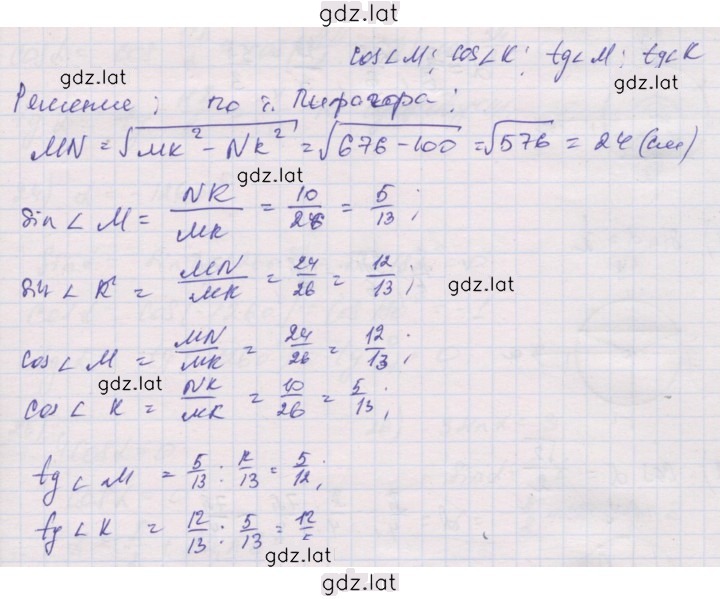 gdz.lat
cos∠M; cos∠K; tg∠M; tg∠K
gdz.lat
gdz.lat
Решение; по т. Пифагора:
MN = √MK² − NK² = √676 − 100 = √576 = 24 (см)
gdz.lat
sin∠M = NK/MK = 10/26 = 5/13;
sin∠K = MN/MK = 24/26 = 12/13;
gdz.lat
cos∠M = MN/MK = 24/26 = 12/13;
gdz.lat
cos∠K = NK/MK = 10/26 = 5/13;
tg∠M = 5/13 : 12/13 = 5/12;
tg∠K = 12/13 : 5/13 = 12/5
gdz.lat
gdz.lat